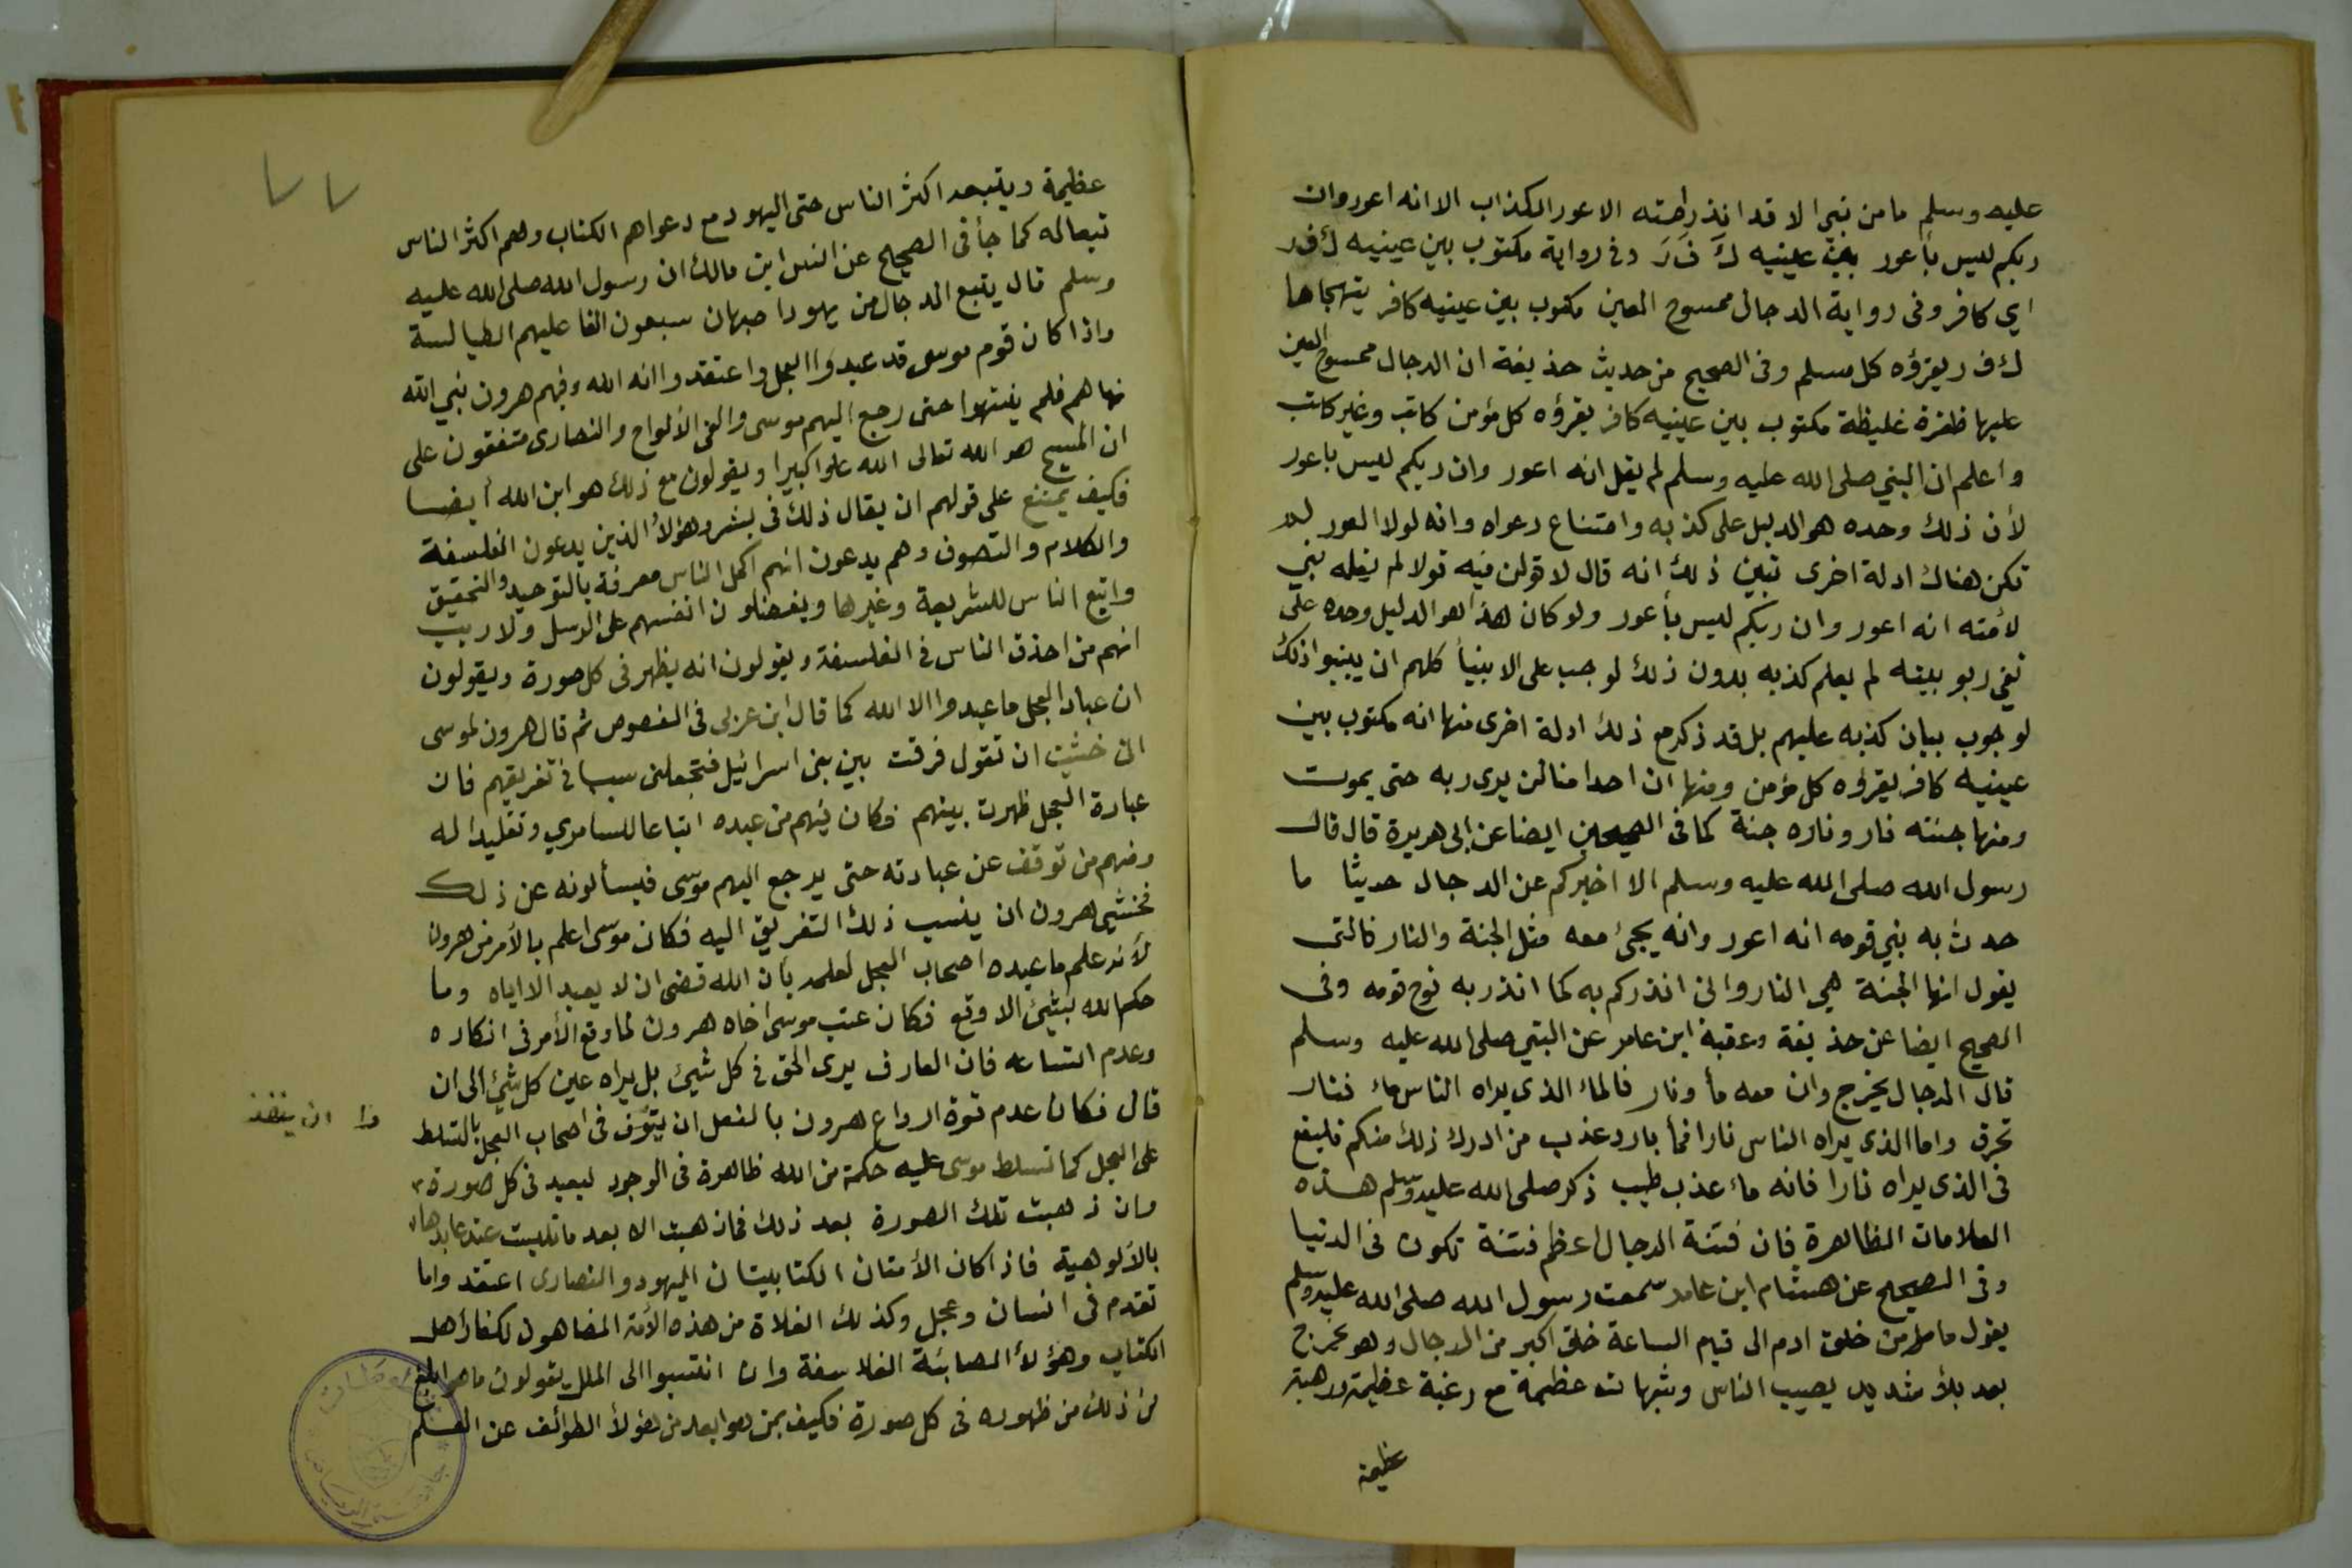 عليه وسلم ما من نبي الا قد انذر امته الاعور الكذاب الا انه اعور وان
ربكم ليس بأعور بين عينيه ك ف ر وفي رواية مكتوب بين عينيه ك ف ر
اي كافر وفى رواية الدجال ممسوح العين مكتوب بين عينيه كافر يتهجاها
ك ف ر يقرؤه كل مسلم وفى الصحيح من حديث حذيفة ان الدجال ممسوح العين
عليها ظفرة غليظة مكتوب بين عينيه كافر يقرؤه كل مؤمن كاتب وغير كاتب
واعلم ان النبي صلى الله عليه وسلم لم يقل انه اعور وان ربكم ليس باعور
لأن ذلك وحده هو الدليل على كذبه وامتناع دعواه وانه لولا العور لم
تكن هناك ادلة اخرى تبين ذلك انه قال لاقولن فيه قولا لم يقله نبي
لأمته انه اعور وان ربكم ليس بأعور ولو كان هذا هو الدليل وحده على
نفي ربوبيته لم يعلم كذبه بدون ذلك لوجب على الانبيأ كلهم ان يبينوا ذلك
لوجوب بيان كذبه عليهم بل قد ذكر مع ذلك ادلة اخرى منها انه مكتوب بين
عينيه كافر يقرؤه كل مؤمن ومنها ان احدا منا لن يرى ربه حتى يموت
ومنها جنته نار وناره جنة كما فى الصحيحين ايضا عن ابى هريرة قال قال
رسول الله صلى الله عليه وسلم الا اخبركم عن الدجال حديثا ما
حدث به نبي قومه انه اعور وانه يجئ معه مثل الجنة والنار فالتى
يقول انها الجنة هي النار وانى انذركم به كما انذر به نوح قومه وفى
الصحيح ايضا عن حذيفة وعقبة ابن عامر عن النبي صلى الله عليه وسلم
قال الدجال يخرج وان معه مأ ونار فالمأ الذى يراه الناس مأ فنار
تحرق واما الذى يراه الناس نارا فمأ بارد عذب من ادرك ذلك منكم فليقع
فى الذى يراه نارا فانه مأ عذب طيب ذكر صلى الله عليه وسلم هذه
العلامات الظاهرة فان فتنة الدجال اعظم فتنة تكون فى الدنيا
وفى الصحيح عن هشام ابن عامر سمعت رسول الله صلى الله عليه وسلم
يقول ما من خلق ادم الى قيام الساعة خلق اكبر من الدجال وهو يخرج
بعد بلأ شديد يصيب الناس وشبهات عظيمة مع رغبة عظيمة ورهبة
عظيمة
٧٧
عظيمة ويتبعه اكثر الناس حتى اليهود مع دعواهم الكتاب وهم اكثر الناس
تبعا له كما جأ فى الصحيح عن انس ابن مالك ان رسول الله صلى الله عليه
وسلم قال يتبع الدجال من يهود اصبهان سبعون الفا عليهم الطيالسة
واذا كان قوم موسى قد عبدوا العجل واعتقدوا انه الله وفيهم هرون نبي الله
نهاهم فلم ينتهوا حتى رجع اليهم موسى والقى الألواح والنصارى متفقون على
ان المسيح هو الله تعالى الله علوا كبيرا ويقولون مع ذلك هو ابن الله أيضا
فكيف يمتنع على قولهم ان يقال ذلك فى بشر وهؤلأ الذين يدعون الفلسفة
والكلام والتصوف وهم يدعون انهم اكمل الناس معرفة بالتوحيد والتحقيق
واتبع الناس للشريعة وغيرها ويفضلون انفسهم على الرسل ولا ريب
انهم من احذق الناس فى الفلسفة ويقولون انه يظهر فى كل صورة ويقولون
ان عباد العجل ما عبدوا الا الله كما قال ابن عربى فى الفصوص ثم قال هرون لموسى
انى خشيت ان تقول فرقت بين بنى اسرائيل فتجعلنى سببا فى تفريقهم فان
عبادة العجل ظهرت بينهم فكان منهم من عبده اتباعا للسامري وتقليدا له
ومنهم من توقف عن عبادته حتى يرجع اليهم موسى فيسألونه عن ذلك
فخشي هرون ان ينسب ذلك التفريق اليه فكان موسى اعلم بالأمر من هرون
لأنه علم ما عبده اصحاب العجل لعلمه بأن الله قضى ان لا يعبد الا اياه وما
حكم الله بشئ الا وقع فكان عتب موسى اخاه هرون لما وقع الأمر فى انكاره
وعدم اتساعه فان العارف يرى الحق فى كل شيئ بل يراه عين كل شيئ الى ان
قال فكان عدم قوة ارداع هرون بالفعل ان فى اصحاب العجل بالتسلط
ان ينفذ
على العجل كما تسلط موسى عليه حكمة من الله ظاهرة فى الوجود ليعبد فى كل صورة
وان ذهبت تلك الصورة بعد ذلك فما ذهبت الا بعد ما تلبست عند عابدها
بالألوهية فاذا كان الأمتان الكتابيتان اليهود والنصارى اعتقدوا ما
تقدم فى انسان وعجل وكذلك الغلاة من هذه الأمة المضاهون لكفار اهل
الكتاب وهؤلأ الصابئة الفلاسفة وان انتسبوا الى الملل يقولون ما هو ابلغ
من ذلك من ظهوره فى كل صورة فكيف بمن هو ابعد من هؤلأ الطوائف عن العلم